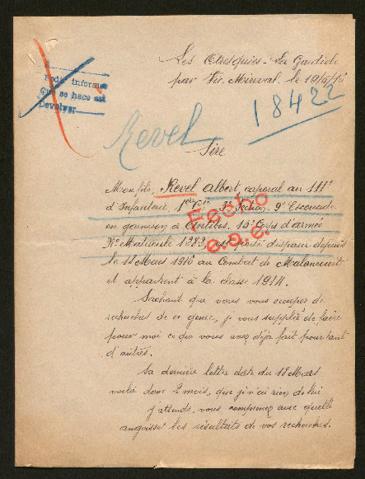 Les
par le
Pedir informe
que se hace est
Devolver
18422
Revel
Sire
Mon fils, Revel Albert caporal au 111e
d'Infanterie, 1ère Cie 3e Section, 9e Escouade
en garnison à Antibes, 15e Corps d'armée
No Matricule 1283 disparu depuis
le 11 Mars 1916 au Combat de Malancourt
et appartient à la classe 1914.
Fecho
Sachant que vous vous occupez de
recherches de ce genre, je vous supplie de faire
pour moi ce que vous avez déjà fait pour tant
d'autres.
Sa dernière lettre date du 11 Mars
voilà donc 2 mois, que je n'ai rien de lui
j'attends, vous comprenez avec quelle
angoisse les résultats de vos recherches.